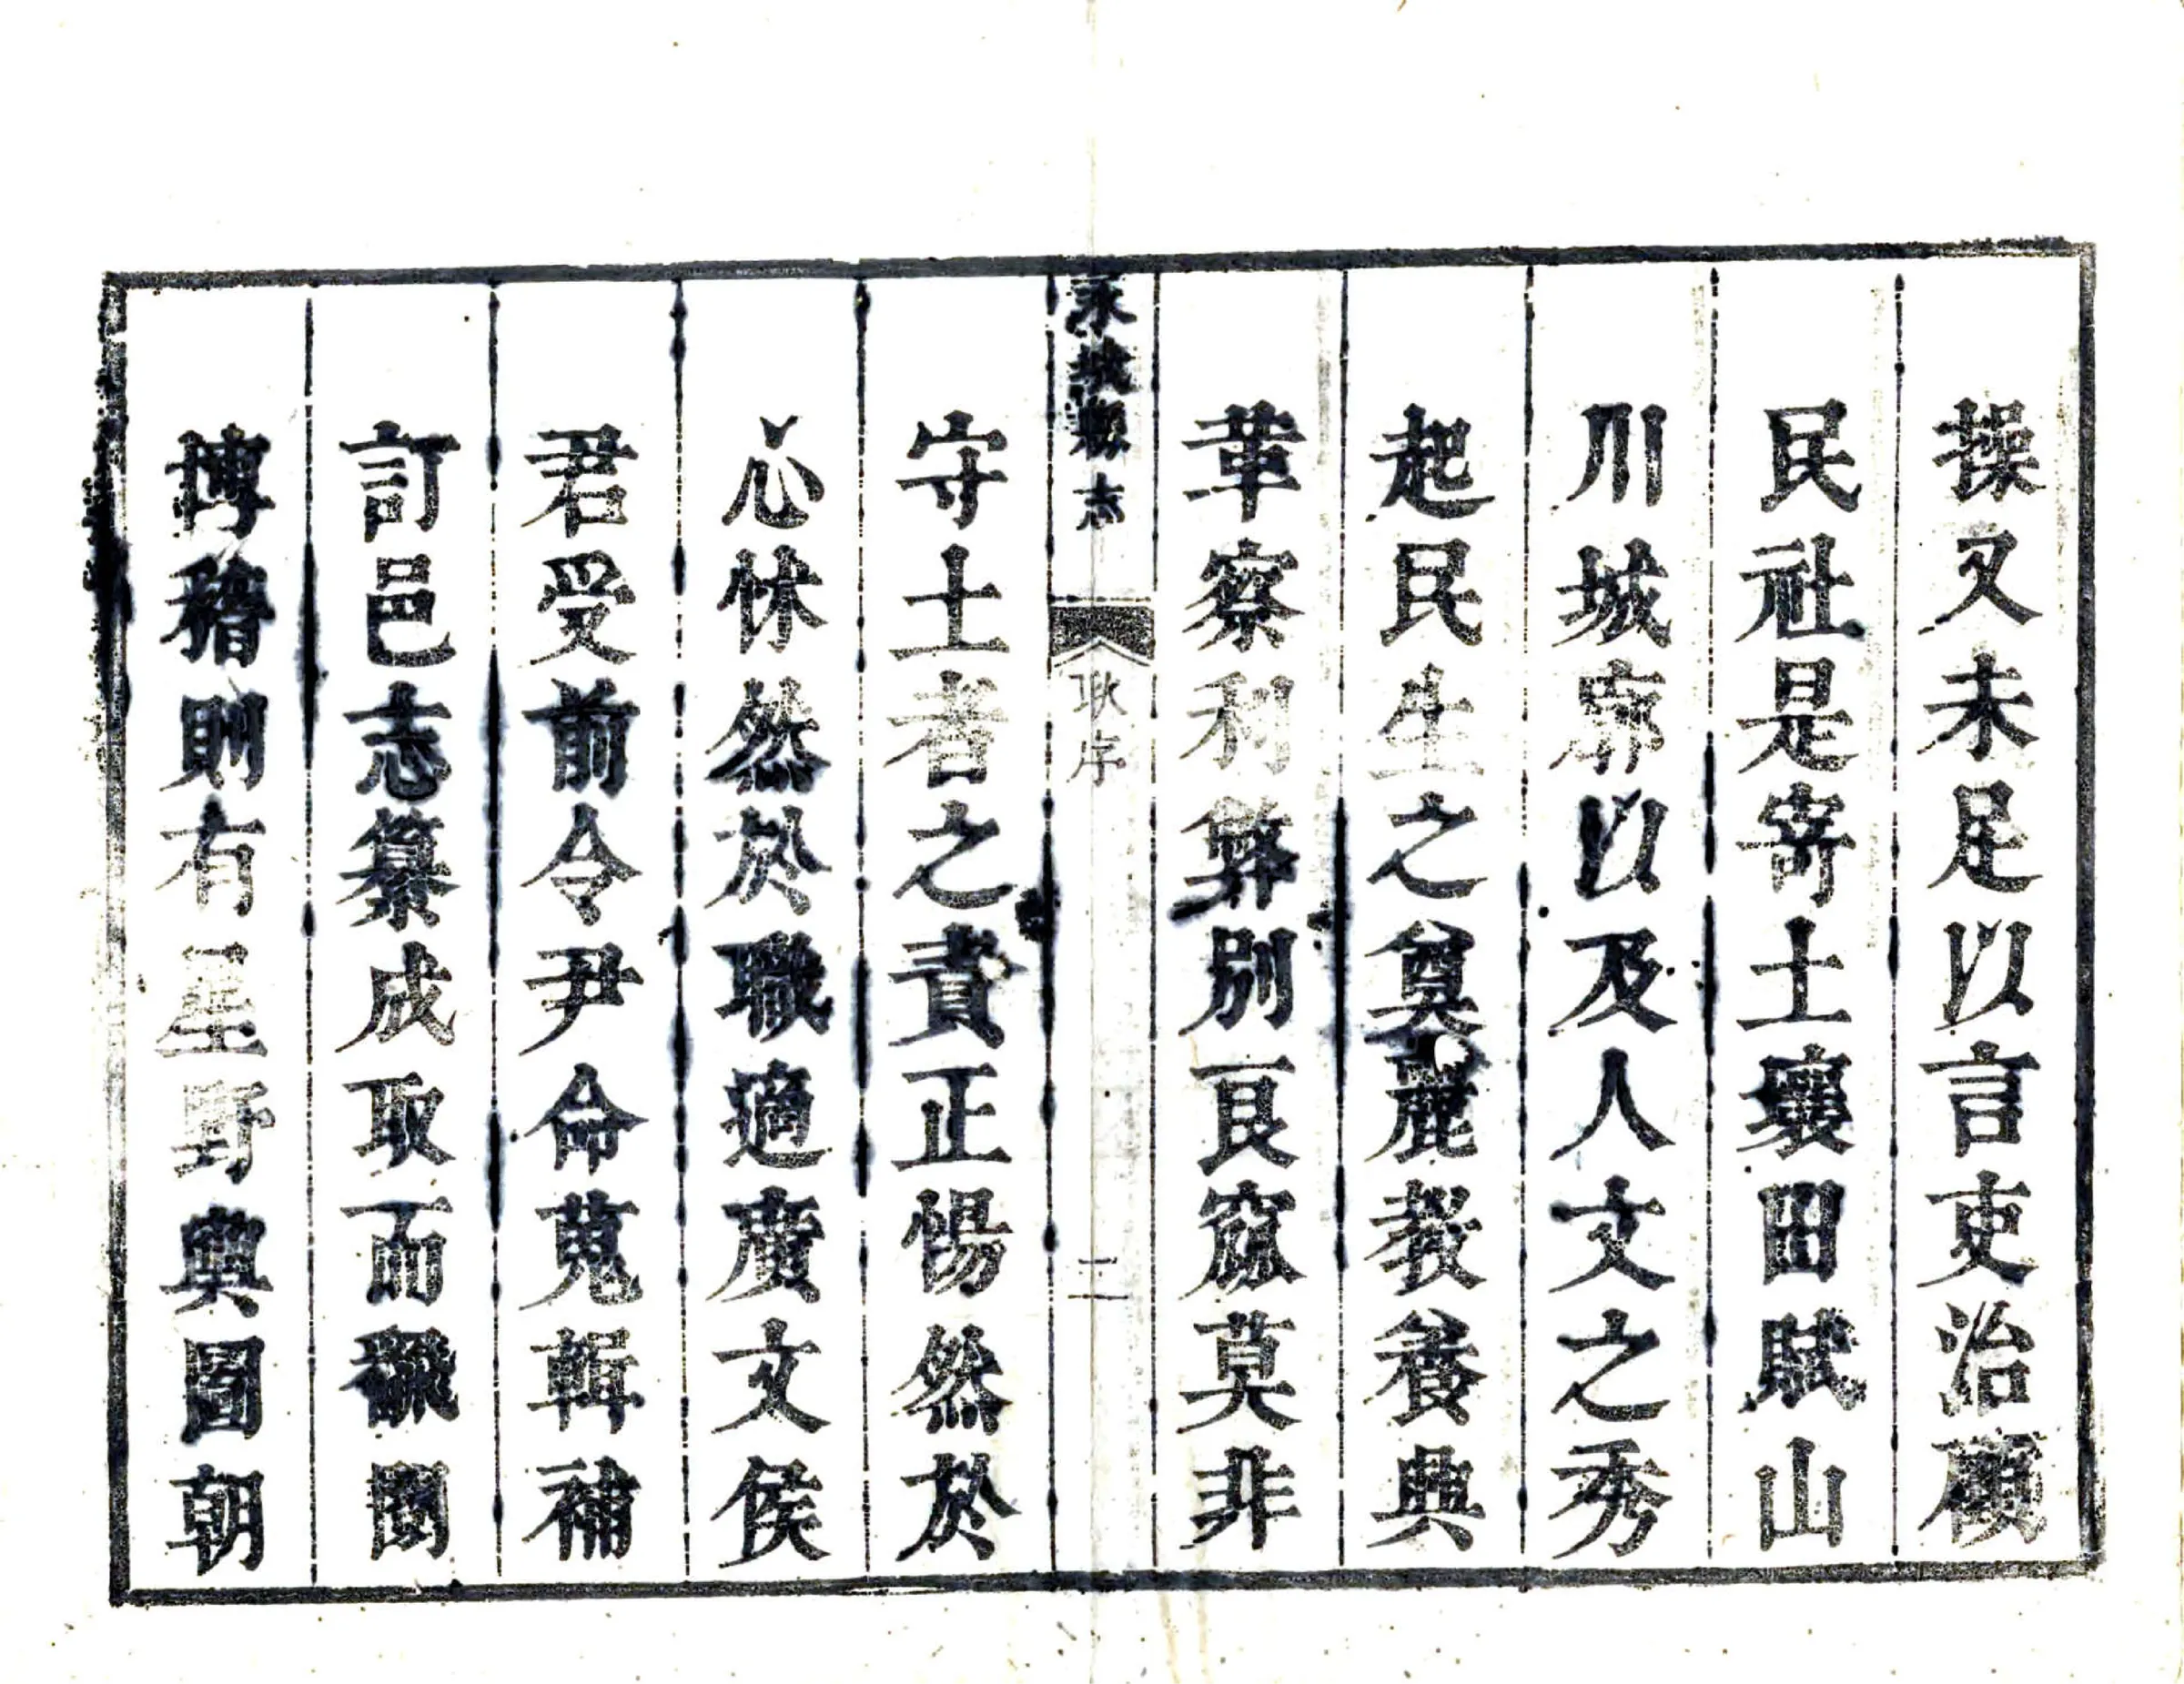 操又未足以言吏治顧
民社是寄土壤田賦山
川城廓以及人文之秀
起民生之奠麗教養興
革察利弊別艮窳莫非
永城縣志
耿序
二
守土者之責正惕然於
心怵然於職適廣文侯
君受前令尹命蒐輯補
訂邑志纂成取而繙閱
博稽則有星野輿圖朝